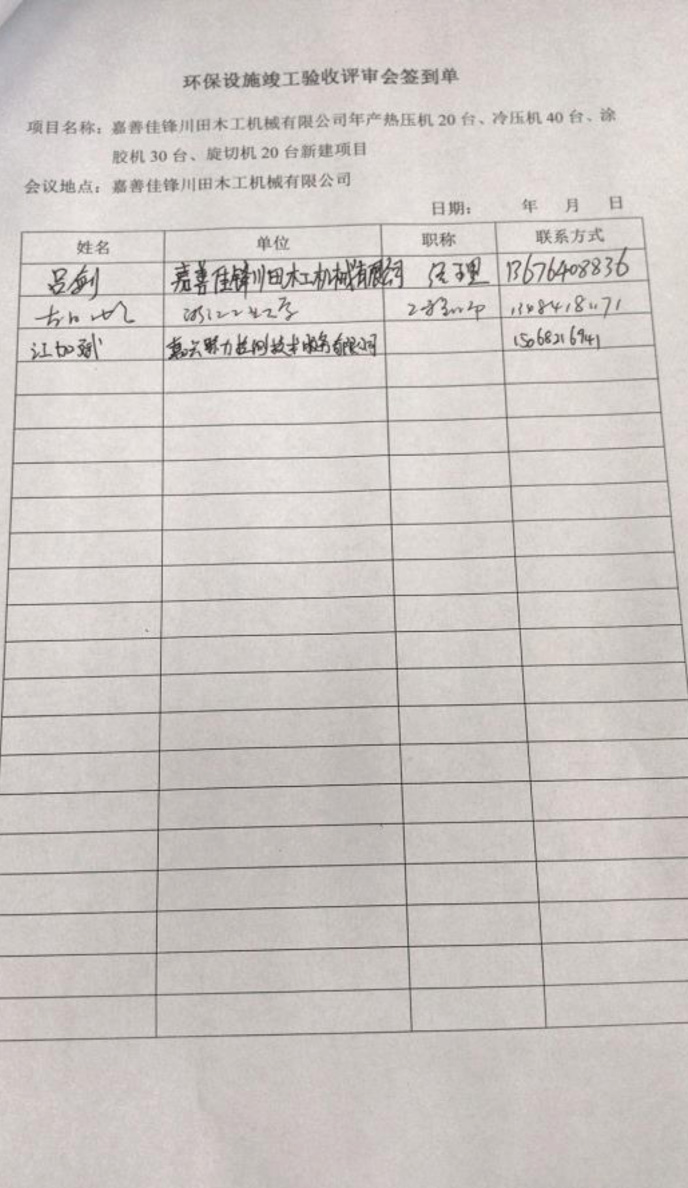 环保设施竣工验收评审会签到单
项目名称：嘉善佳锋川田木工机械有限公司年产热压机 20 台、冷压机 40 台、涂
胶机 30 台、旋切机 20 台新建项目
会议地点：嘉善佳锋川田木工机械有限公司
日期： 年 月 日
姓名 单位 职称 联系方式
吕剑 嘉善佳锋川田木工机械有限公司 经理 13676408836
浙江工业大学
江加斌 嘉兴聚力检测技术服务有限公司 15068216941